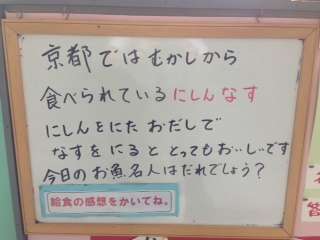 京都ではむかしから
食べられているにしんなす
にしんをにたおだしで
なすをにるととってもおいしいです
今日のお魚名人はだれでしょう？
給食の感想をかいてね。